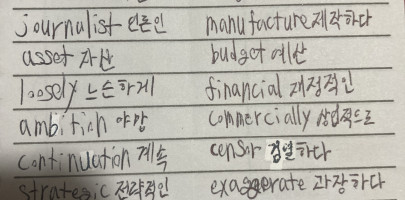 journalist 언론인 manufacture 제작하다
asset 자산 budget 예산
loosely 느슨하게 financial 재정적인
ambition 야망 commercially 상업적으로
continuation 계속 censor 검열하다
strategic 전략적인 exaggerate 과장하다